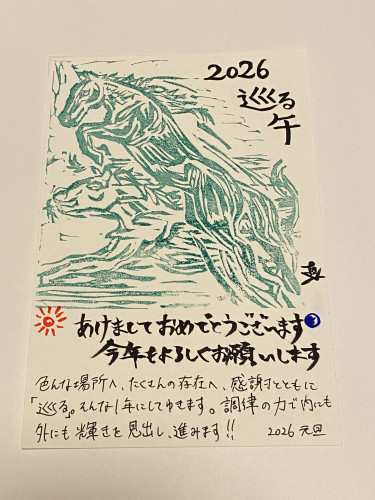 2026
巡る
午
あけましておめでとうございます
今年もよろしくお願いします
色んな場所へ、たくさんの存在へ、感謝とともに
「巡る。そんな1年にしてゆきます。調律の力で内にも
外にも輝きを見出し、進みます!!
2026 元旦